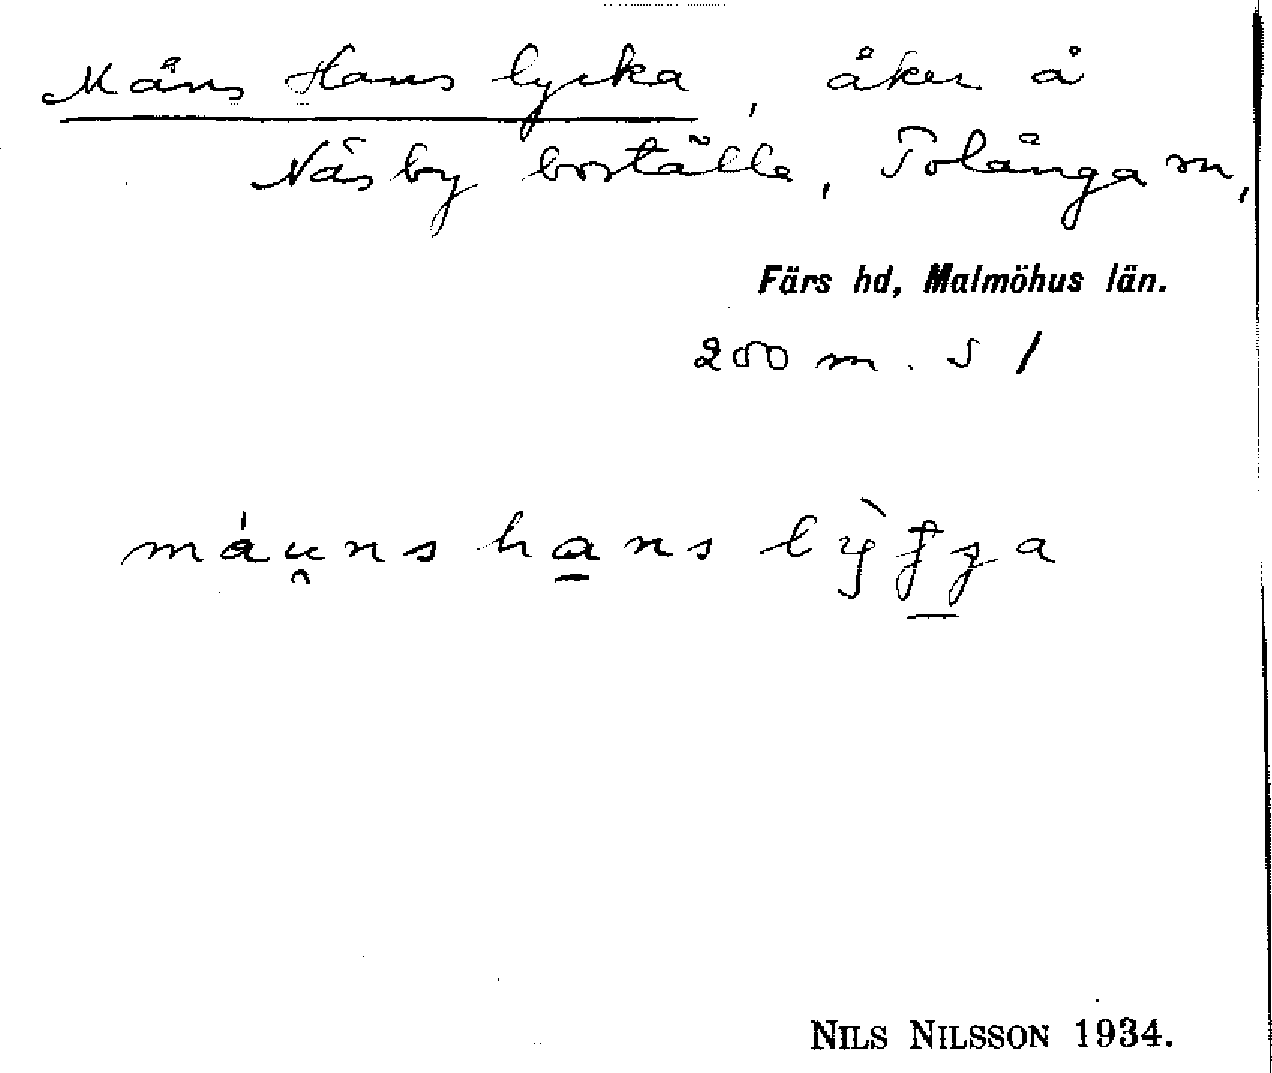 Måns Hans lycka, åker å
Näsby boställe, Tolånga sn,
Färs hd, Malmöhus län.
200 m. S /
máu̯ns hans
NILS NILSSON 1934.